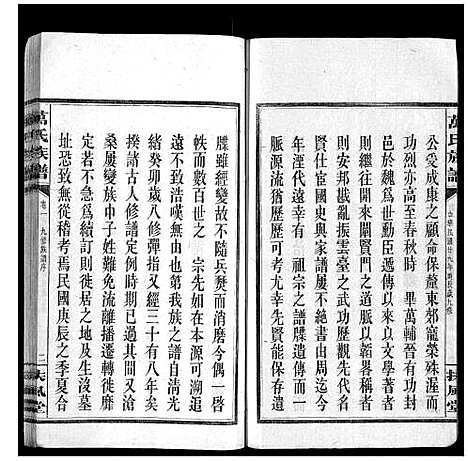 公受成康之顧命保釐東郊寵榮殊渥而
功烈亦高至春秋時　畢萬輔晉有功封
邑於魏爲世勳臣遞傳以來以文學著者
則繼往開來闡賢門之道脈以韜畧稱者
則安邦戡亂振雲臺之武功歷觀先代名
賢任宦國史與家譜屢有明徵由周迄今
年湮代遠幸有　祖宗之譜牒遺傳而一
脈源流猶歷歷可考尤幸先賢纂修之譜
萬氏族譜
中華民國廿九年庚辰歲九修
扶風堂
牒雖經變故不隨兵燹而消磨今偶一啓
帙而數百世之　宗先如在本源可溯追
遠而流澤無窮由也第我族之譜自清光
緒癸卯歲八修彈指又經三十有八年矣
揆諸古人修譜定例時期已過其間又滄
桑屢變族中丁子蕃衍難免流離播遷若
定若不急爲續訂則徙居之地及生歿葬
址恐致無從稽考焉民國庚辰之季夏合
萬氏族譜
卷一　九修族譜序
二
扶風堂